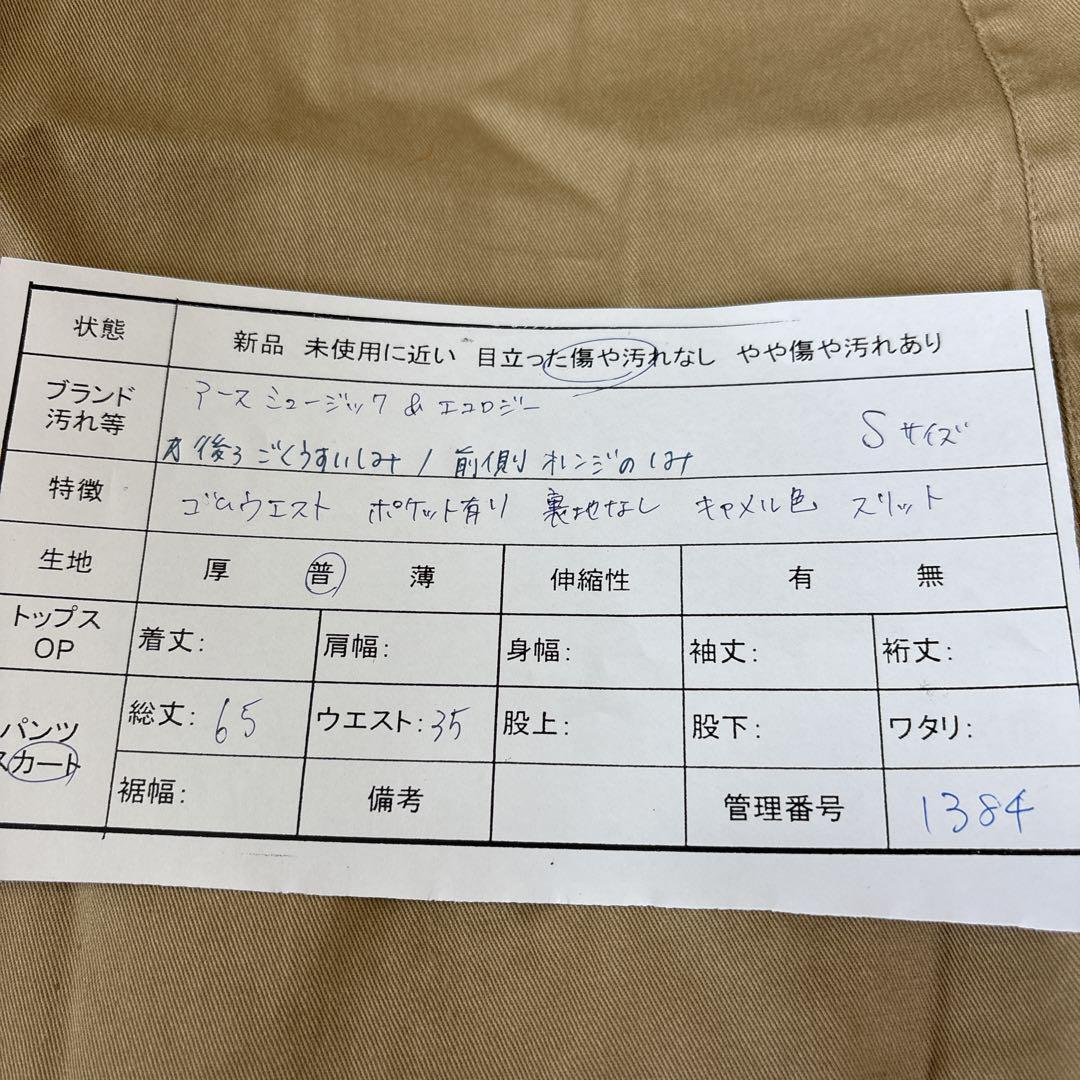 状態 新品 未使用に近い 目立った傷や汚れなし やや傷や汚れあり
ブランド アースミュージック & エコロジー
汚れ等 後ろごくうすいしみ / 前側オレンジのしみ Sサイズ
特徴 ゴムウエスト ポケット有り 裏地なし キャメル色 スリット
生地 厚 普 薄 伸縮性 有 無
トップス
OP 着丈: 肩幅: 身幅: 袖丈: 裄丈:
パンツ 総丈: 65 ウエスト: 35 股上: 股下: ワタリ:
スカート 裾幅: 備考 管理番号 1384